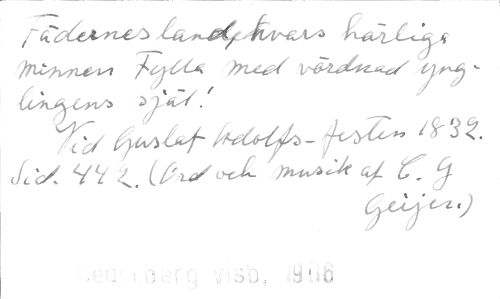 Fädernesland, hvars härliga
minnen Fylla med vördnad yng-
lingens själ!
Vid Gustaf Adolfs-festen 1832.
Sid. 442. (Ord och musik af E. G
Geijer.)
Cederberg visb, 1968